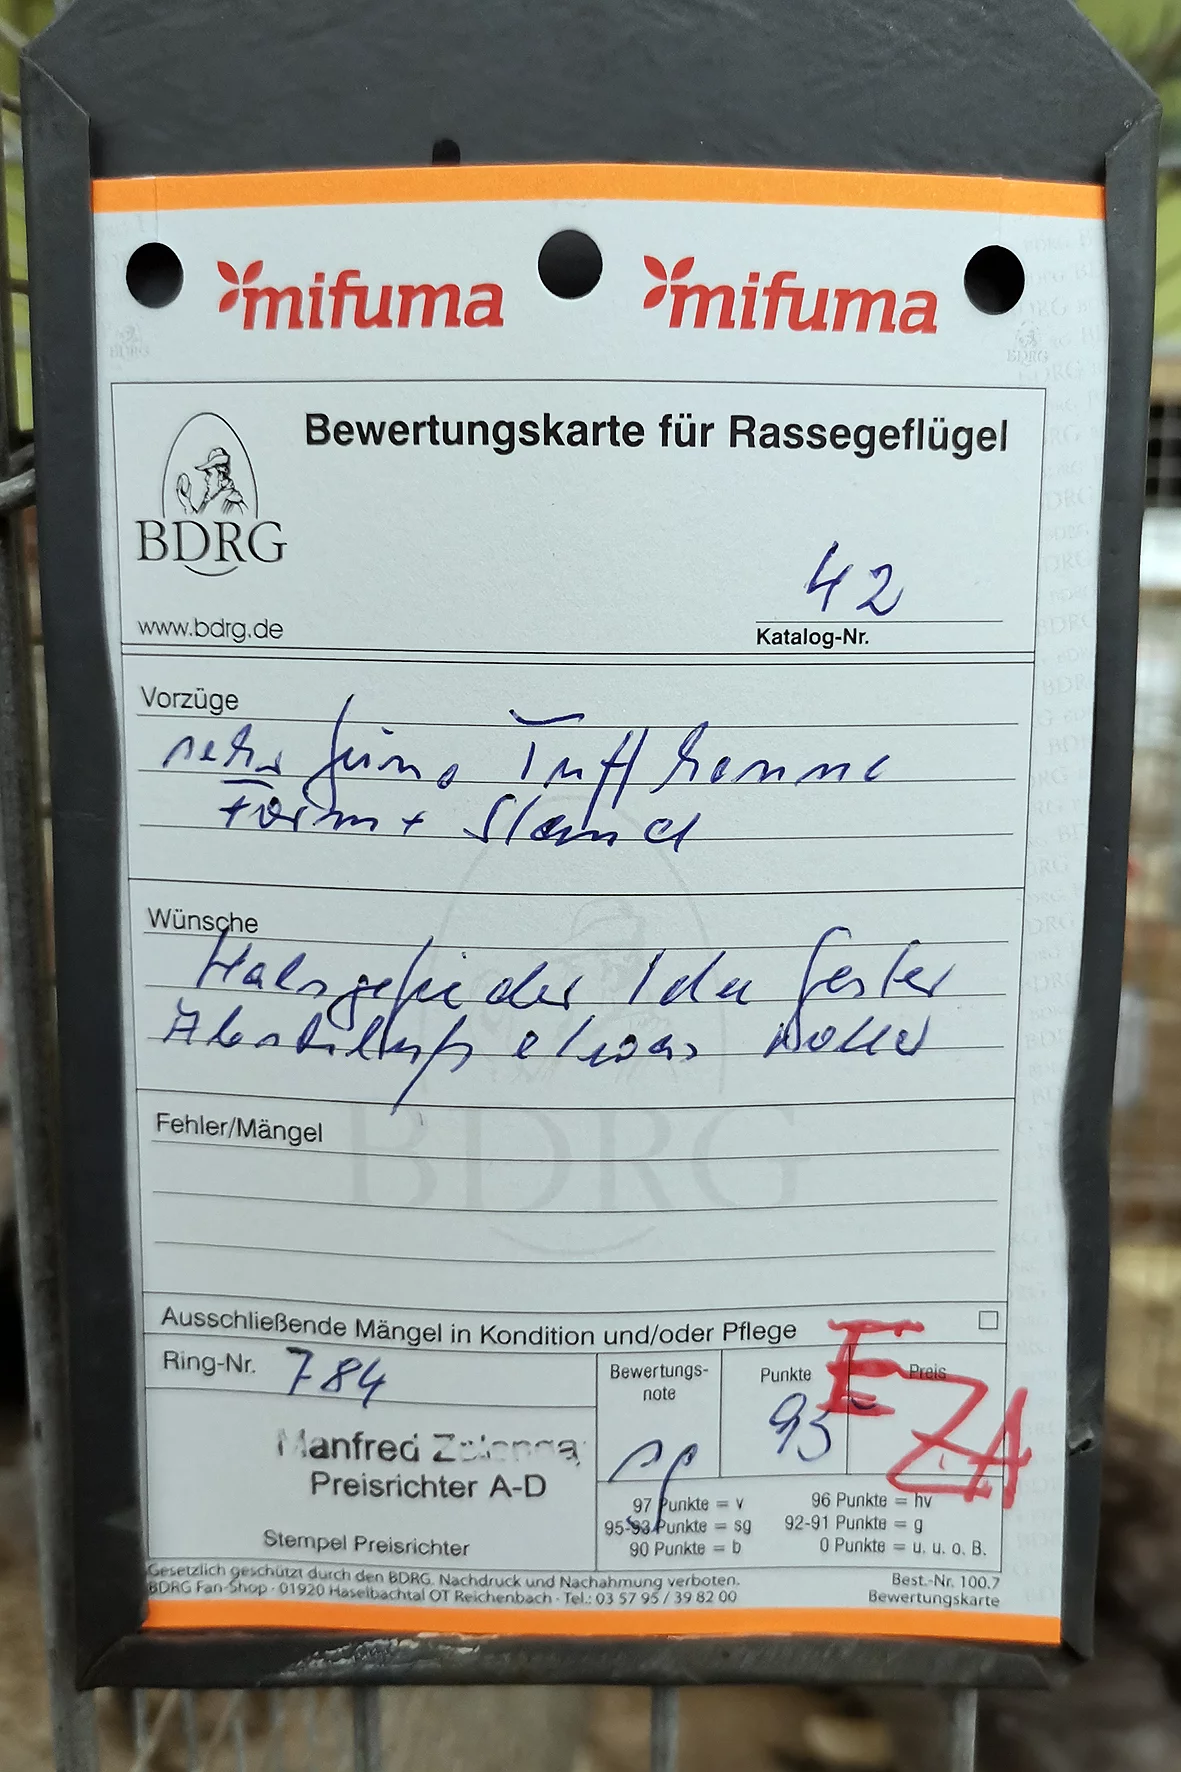 mifuma mifuma
Bewertungskarte für Rassegeflügel
BDRG
www.bdrg.de
42
Katalog-Nr.
Vorzüge
sehr feine Truthenne
Form + Stand
Wünsche
Halsgefieder fester
Abschluß etwas voller
Fehler/Mängel
Ausschließende Mängel in Kondition und/oder Pflege
Ring-Nr. 784
Bewertungs-
note
sg
Punkte
93
Preis
E
ZA
Manfred
Preisrichter A-D
Stempel Preisrichter
97 Punkte = v 96 Punkte = hv
95-93 Punkte = sg 92-91 Punkte = g
90 Punkte = b 0 Punkte = u. u. o. B.
Gesetzlich geschützt durch den BDRG. Nachdruck und Nachahmung verboten.
BDRG Fan-Shop · 01920 Haselbachtal OT Reichenbach · Tel.: 03 57 95 / 39 82 00
Best.-Nr. 100.7
Bewertungskarte